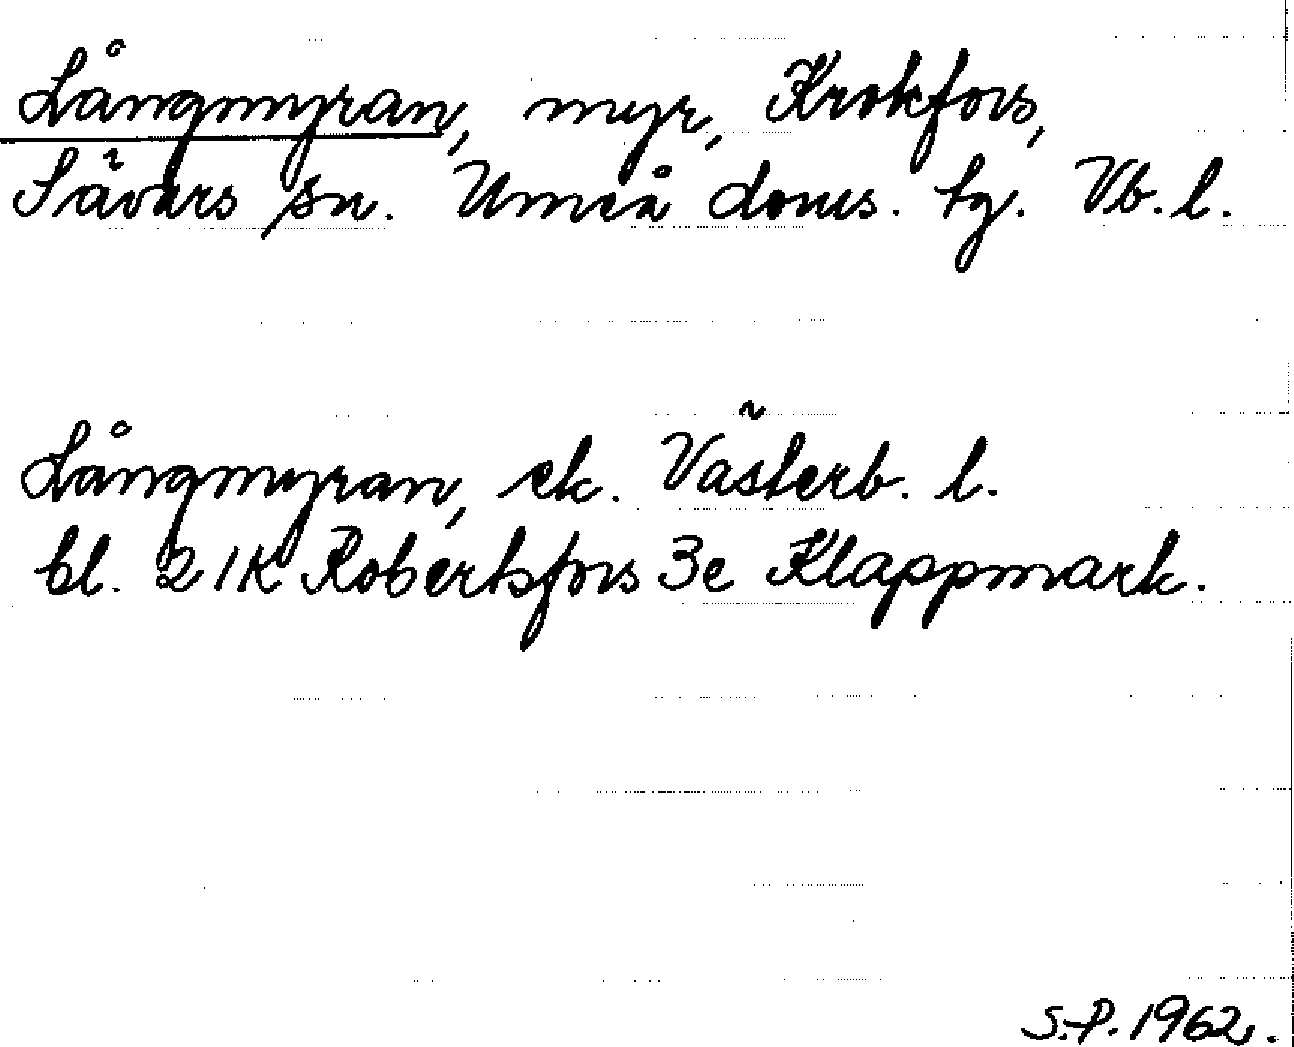 Långmyran, myr, Krokfors,
Sävars sn. Umeå doms. tg. Vb. l.
Långmyran, ek. Västerb. l.
bl. 21K Robertsfors 3e Klappmark.
S.P. 1962.